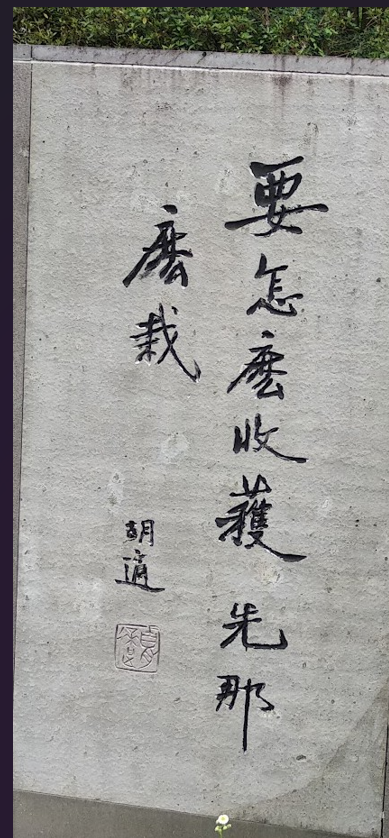 要怎麼收穫先那
麼栽
胡適